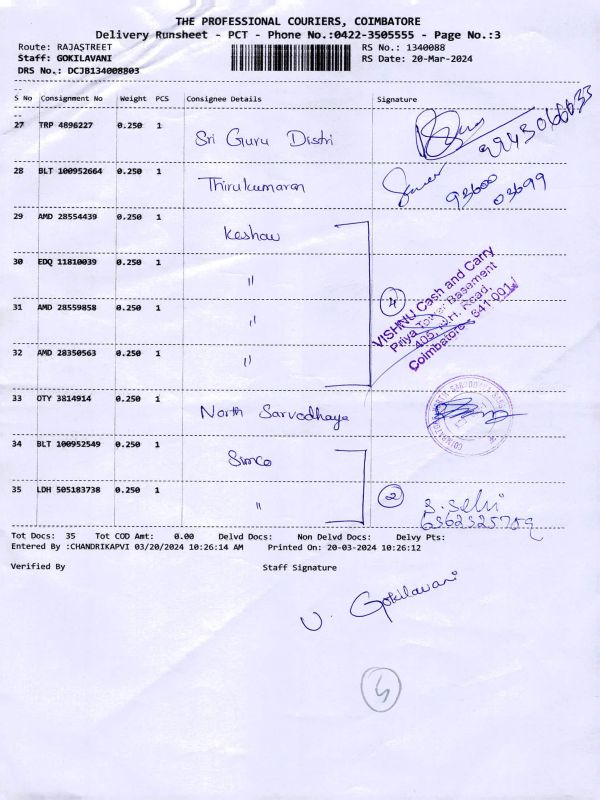 THE PROFESSIONAL COURIERS, COIMBATORE
Delivery Runsheet - PCT - Phone No.:0422-3505555 - Page No.:3
Route: RAJASTREET RS No.: 1340088
Staff: GOKILAVANI RS Date: 20-Mar-2024
DRS No.: DCJB134008803
S No Consignment No Weight PCS Consignee Details Signature
27 TRP 4896227 0.250 1 Sri Guru Distri
28 BLT 100952664 0.250 1 Thirukumaran
93600
03699
29 AMD 28554439 0.250 1 Keshav
30 EDQ 11810039 0.250 1 "
31 AMD 28559858 0.250 1 "
4
VISHNU Cash and Carry
Priya Tower Basement
405, Road,
Coimbatore - 641 001
32 AMD 28350563 0.250 1 "
33 OTY 3814914 0.250 1 North Sarvodhaya
34 BLT 100952549 0.250 1 Simco
35 LDH 505183738 0.250 1 "
2
S. Selvi
Tot Docs: 35 Tot COD Amt: 0.00 Delvd Docs: Non Delvd Docs: Delvy Pts:
Entered By :CHANDRIKAPVI 03/20/2024 10:26:14 AM Printed On: 20-03-2024 10:26:12
Verified By Staff Signature
V. Gokilavani